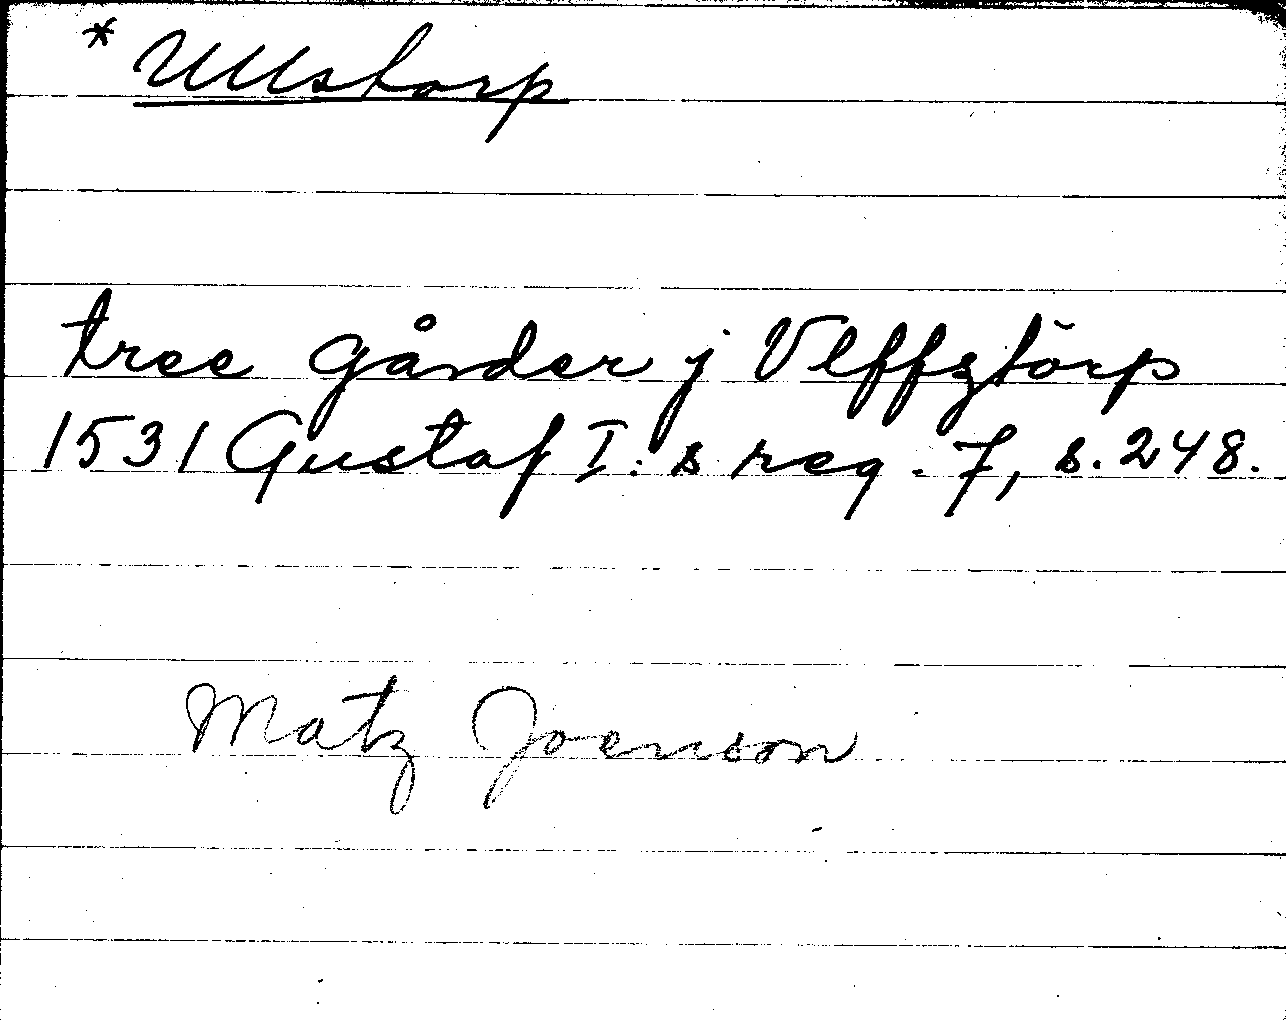 * Ullstorp
tree gårder j Vlffztörp
1531 Gustaf I:s reg. 7, s. 248.
Matz Joenson